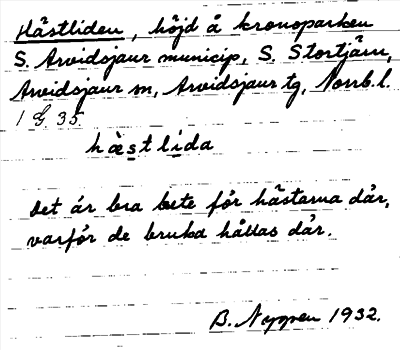 Hästliden, höjd å kronoparken
S. Arvidsjaur municip, S. Stortjärn,
Arvidsjaur sn, Arvidsjaur tg, Norrb. l.
1 G 35.
hæstlida
Det är bra bete för hästarna där,
varför de bruka hållas där.
B. Nygren 1932.